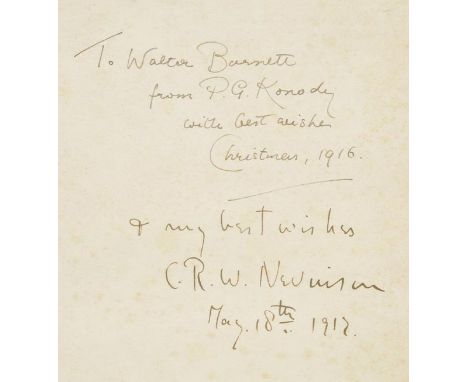 To Walter Barnett
from P. G. Konody
with best wishes
Christmas, 1916.
& my best wishes
C. R. W. Nevinson
May. 18th 1917.